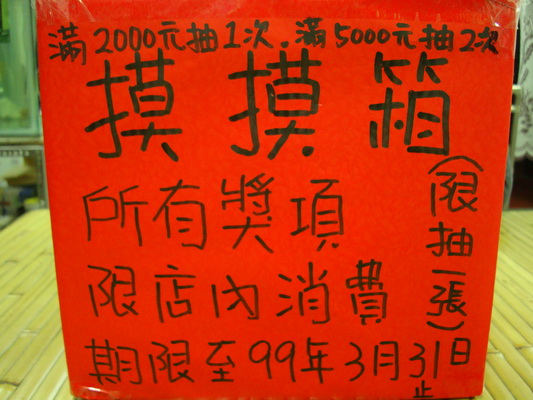 滿2000元抽1次.滿5000元抽2次
摸摸箱
(限抽一張)
所有獎項
限店內消費
期限至99年3月31日止